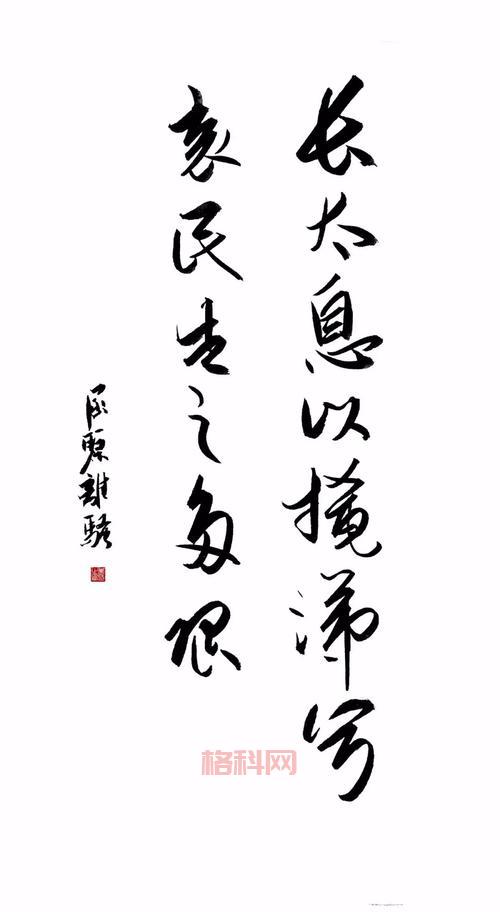 长太息以掩涕兮
哀民生之多艰
屈原離騷
格科网